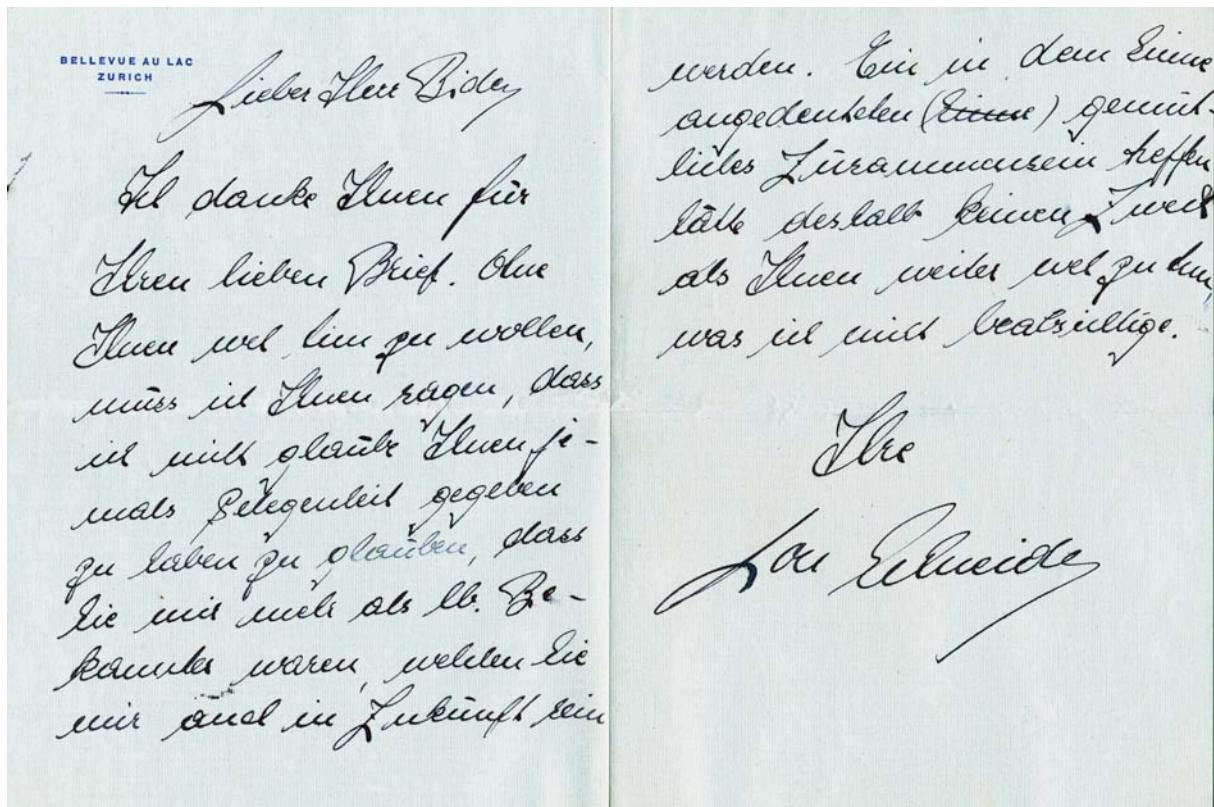 BELLEVUE AU LAC
ZURICH
Lieber Herr
Ich danke Ihnen für
Ihren lieben Brief. Ohne
Ihnen weh tun zu wollen,
muss ich Ihnen sagen, dass
ich nicht glaube Ihnen je-
mals Gelegenheit gegeben
zu haben zu glauben, dass
Sie mir mehr als lb. Be-
kannter waren, welchen Sie
mir auch in Zukunft sein
werden. Ein in dem Sinne
angedeuteten (Sinne) gemüt-
liches Zusammensein treffen
hätte deshalb keinen Zweck
als Ihnen weiter weh zu tun,
was ich nicht beabsichtige.
Ihre
Lou Schneider